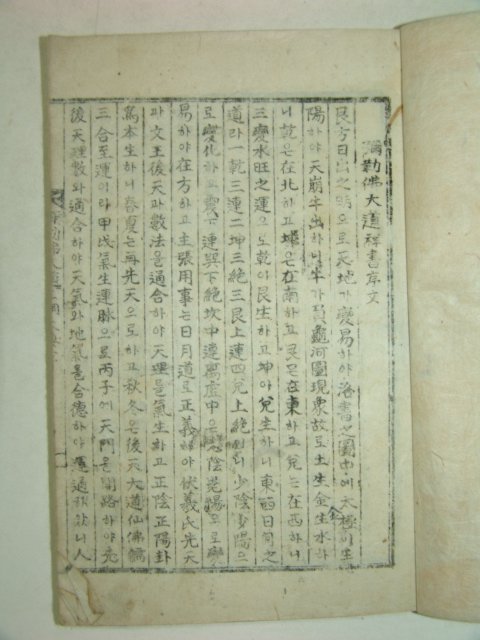 彌勒佛大道禪書序文
艮方日出之明으로天地가變易하야洛書之圖中에太極이生
陽하야天崩牛出하니牛가負龜河圖現象故로土生金生水하
니乾은在北하고坤은在南하고艮은在東하고兌는在西하니
三變水旺之運으로乾이艮生하고坤아兌生하니東西日月之
道라一乾三連二坤三絶三艮上連四兌上絶이니少陰少陽으
로變化하고震下連巽下絶坎中連离虛中은陰졍陽으로
易하야在方하고主張用事는日月道로正義하야伏羲氏先天
과文王後天과數法을通合하야天理를氣生하고正陰正陽卦
爲本生하니春夏는再先天으로하고秋冬은後天大道仙佛儒
三合至運이라甲戌氣生運脉으로丙子에天門을開路하야先
後天理數와通合하야天氣와地氣를合德하야運通하니人